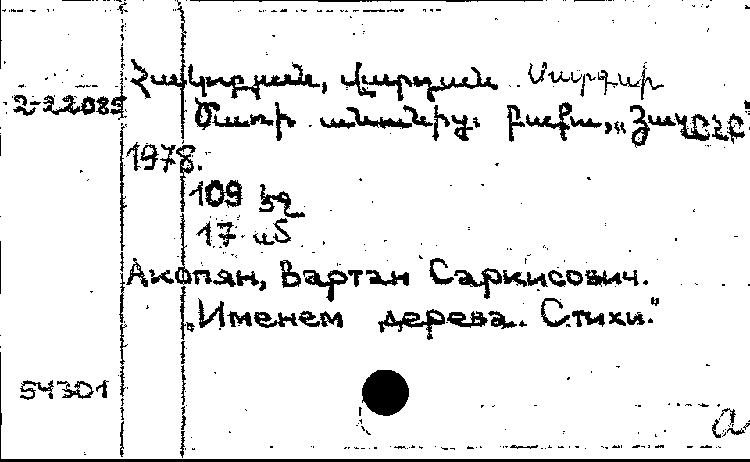 Հակոբյան, Վարդան Սարգսի
2-22085
Ծառի անունից: Բաքու, „Յազըչը"
1978.
109 էջ
17 սմ
Акопян, Вартан Саркисович.
„Именем дерева. Стихи."
54301
а